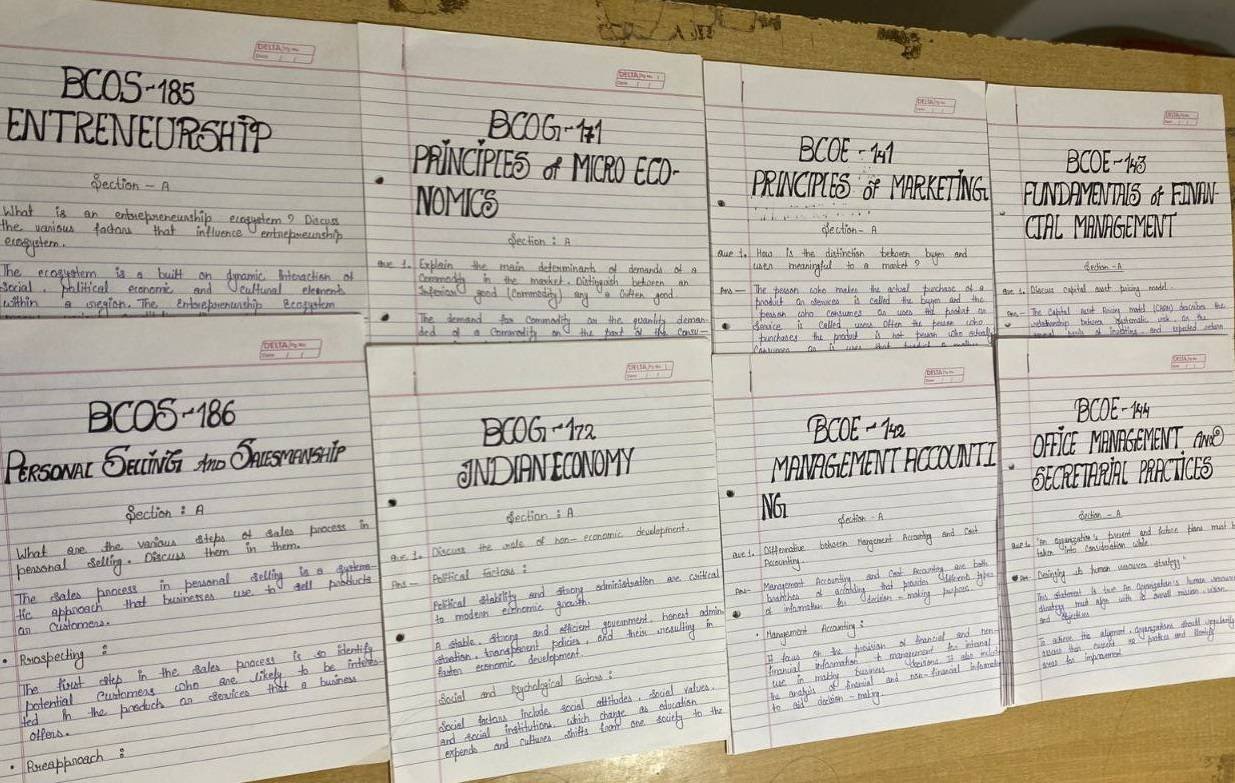 DELTA Pg No.
Date / /
BCOS-185
ENTRENEURSHIP
Section - A
What is an entrepreneurship ecosystem? Discuss
the various factors that influence entrepreneurship
ecosystem.
The ecosystem is a built on dynamic interaction of
social, political economic and cultural elements
within a region. The Entrepreneurship Ecosystem
DELTA Pg No.
Date / /
BCOG-171
PRINCIPLES of MICRO ECO-
NOMICS
Section : A
Que 1. Explain the main determinants of demands of a
Commodity in the market. Distinguish between an
Inferior good (Commodity) and a Giffen good.
The demand for commodity or the quantity deman-
ded of a commodity on the part of the consu-
DELTA Pg No.
Date / /
BCOE-141
PRINCIPLES of MARKETING
Section- A
Que 1. How is the distinction between buyer and
user meaningful to a market?
Ans - The person who makes the actual purchase of a
product or services is called the buyer and the
person who consumes or uses the product or
service is called user Often the person who
purchases the product is not person who actually
consumes or is uses that product
DELTA Pg No.
Date / /
BCOE-143
FUNDAMENTALS of FINAN-
CIAL MANAGEMENT
Section -A
Que 1. Discuss capital asset pricing model.
Ans - The Capital Asset Pricing Model (CAPM) describes the
relationship between systematic risk, or the
general of investing, and expected return
DELTA Pg No.
Date / /
BCOS-186
PERSONAL SELLING AND SALESMANSHIP
Section : A
What are the various steps of sales process in
personal selling. Discuss them in them.
The sales process in personal selling is a systema-
tic approach that businesses use to sell products
or customers.
• Prospecting :
The first step in the sales process is to identify
potential customers who are likely to be interes-
ted in the product or services that a business
offers.
• Preapproach :
DELTA Pg No.
Date / /
BCOG-172
INDIAN ECONOMY
Section : A
Que 1. Discuss the role of non-economic development.
Ans - Political factors :
Political stability and strong administration are critical
to modern economic growth.
A stable, strong and efficient government, honest admin
istration, transparent policies, and their resulting in
faster economic development.
Social and Psychological factors :
Social factors include social attitudes, social values,
and social institutions, which change as education
expends and cultures shifts from one society to the
DELTA Pg No.
Date / /
BCOE-142
MANAGEMENT ACCOUNTI
NG
Section -A
Que 1. Differentiate between Mangement Accounting and Cost
Accounting.
Ans- Management Accounting and Cost Accounting are both
branches of accounting that provides different types
of information for decision-making purposes.
• Management Accounting :
It focus on the provision of financial and non-
financial information to management for internal
use in making business decisions. It also include
the analysis of financial and non-financial information
to aid decision-making.
DELTA Pg No.
Date / /
BCOE-144
OFFICE MANAGEMENT AND
SECRETARIAL PRACTICES
Section - A
Que 1. "An organization's present and future plans must be
taken into consideration while
Designing its human resources strategy"
Ans This statement is true An Organization's human resource
strategy must align with its overall mission, vision
and objectives
To achieve the alignment, organizations should regularly
assess their current HR practices and identify
areas for improvement